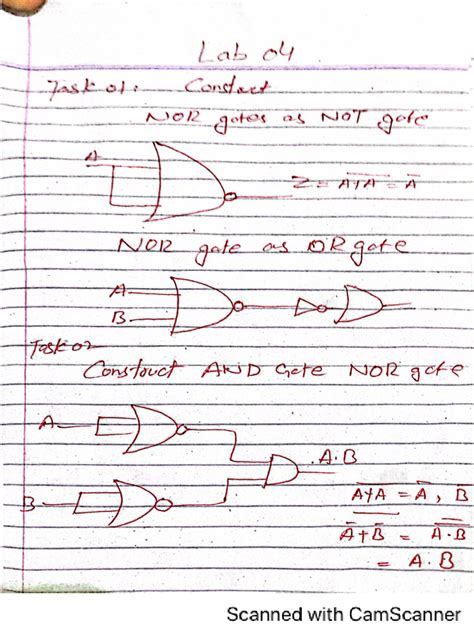 Lab 04
Task 01: Construct
NOR gates as NOT gate
A
Z = A̅+̅A̅ = A̅
NOR gate as OR gate
A
B
Task 02
Construct AND Gate NOR gate
A
A.B
B
A̅+̅A̅ = A̅, B̅
A̅+B̅ = A̅.̅B̅
= A.B
Scanned with CamScanner